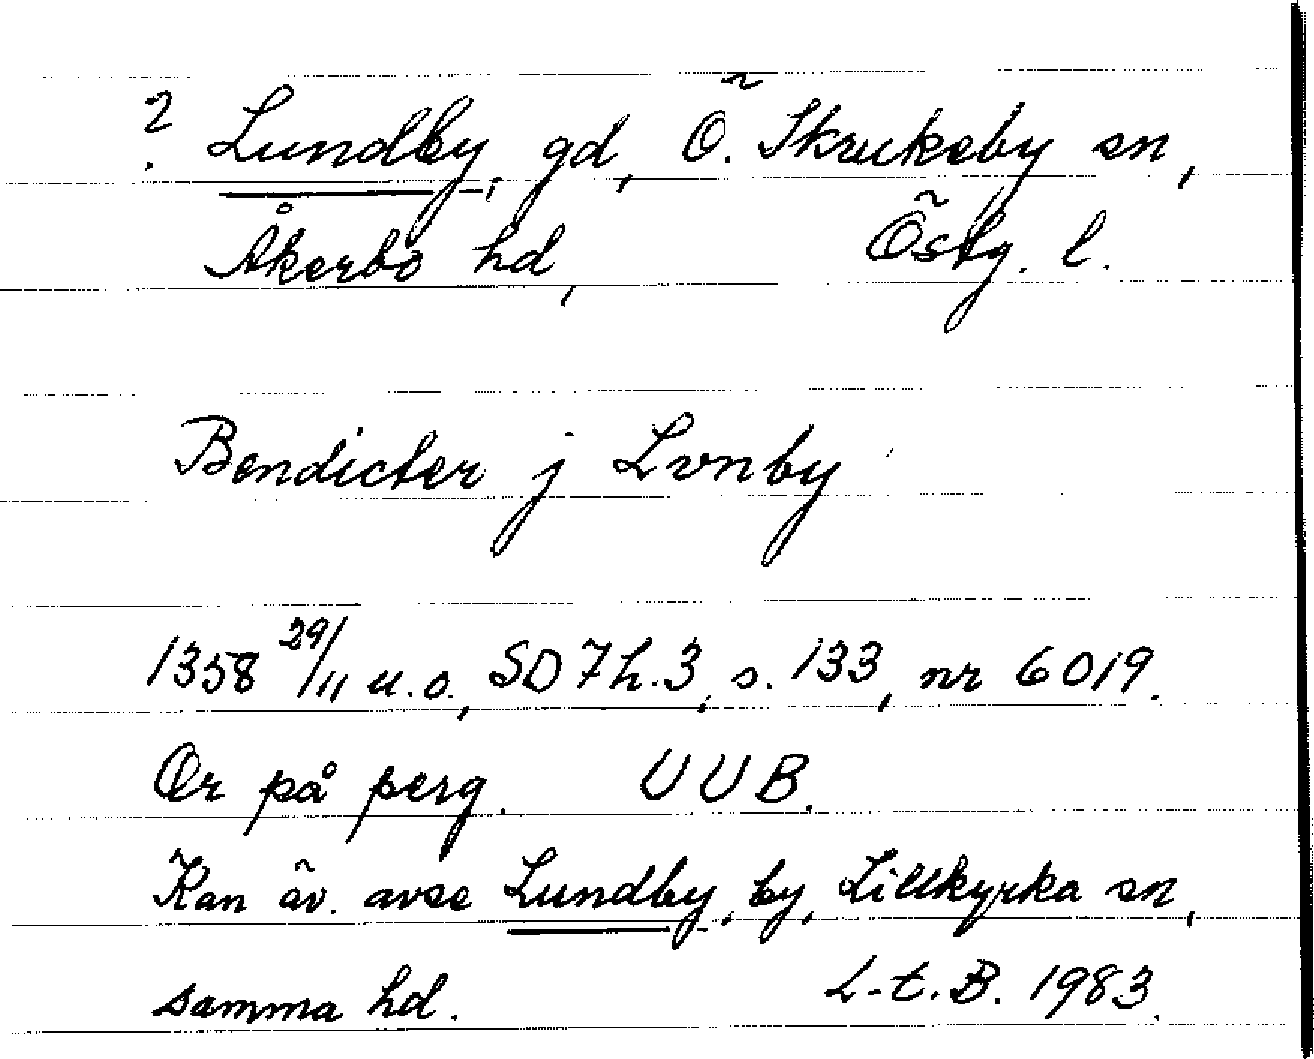 ? Lundby, gd, Ö. Skrukeby sn,
Åkerbo hd, Östg. l.
Bendicter j Lvnby
1358 29/11 u.o., SD 7 h. 3, s. 133, nr 6019.
Or på perg. UUB.
Kan äv. avse Lundby, by, Lillkyrka sn,
samma hd. L-t. B. 1983.